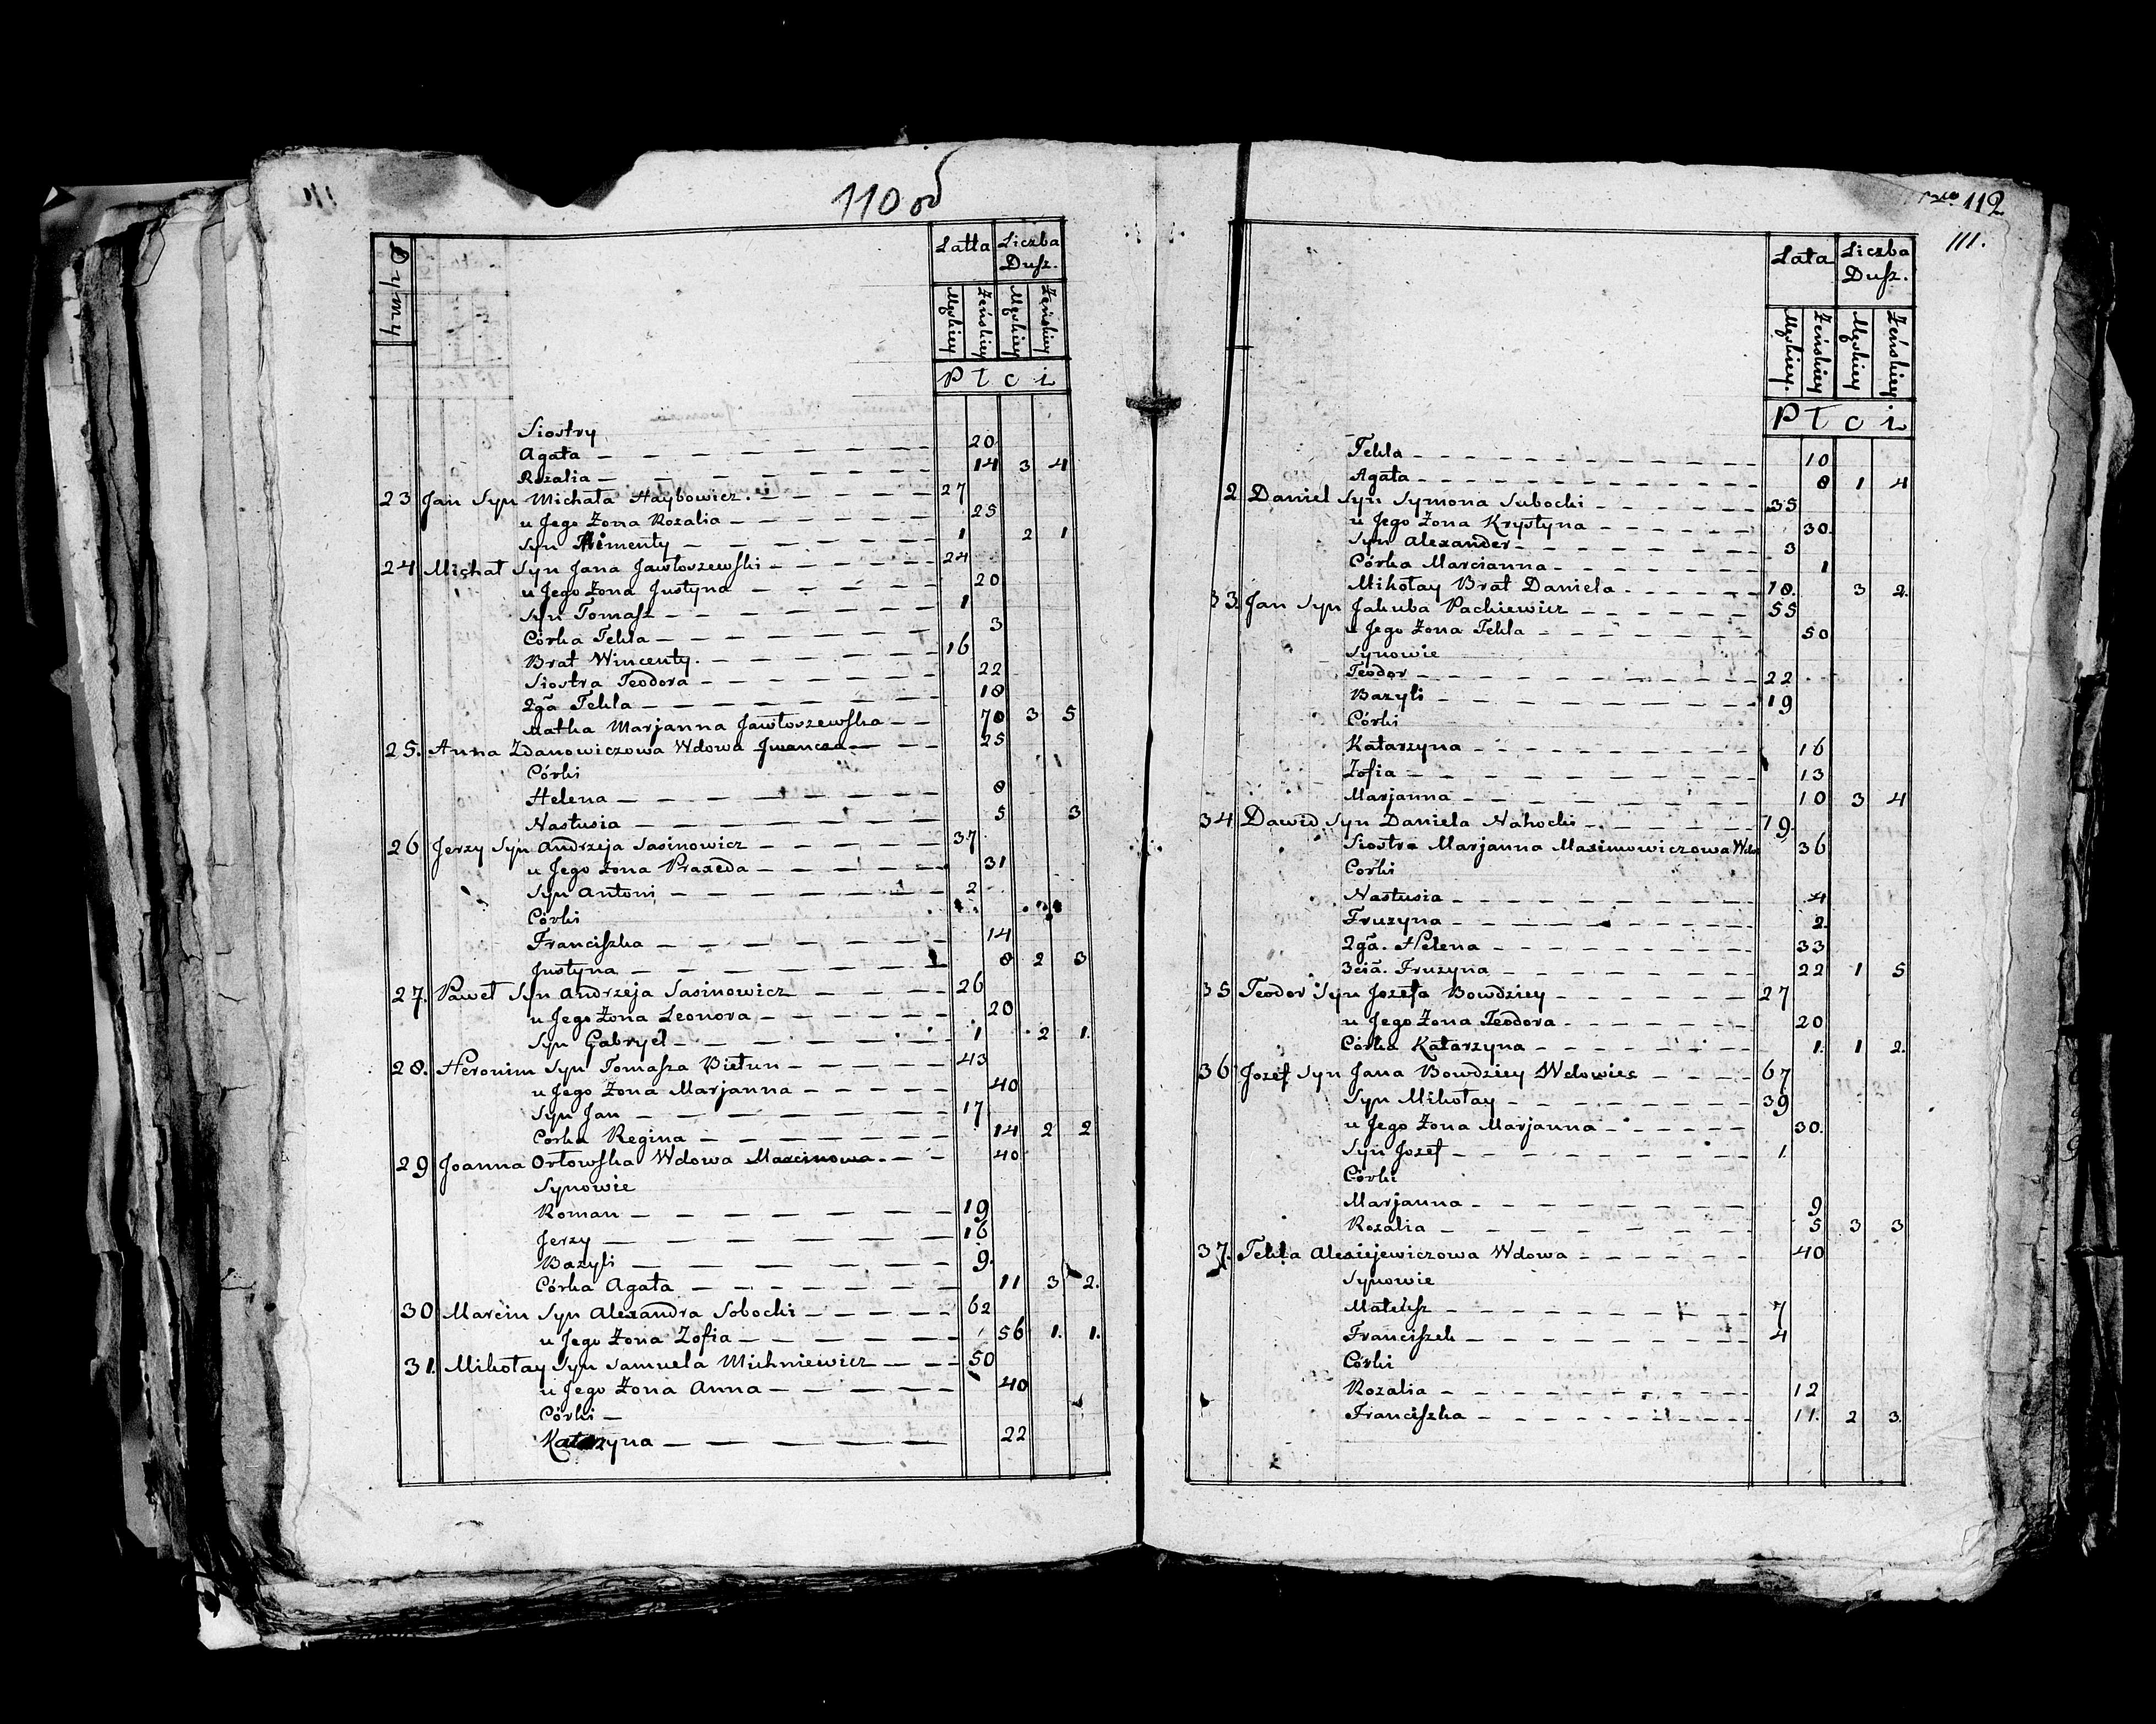 110 об
Dymy
Łatta Liczba Dusz.
Męskiey Żeńskiey Męskiey Żeńskiey
P ł c i
Siostry
Agata — 20
Rozalia — 14 3 4
23 Jan Syn Michała Haybowicz. — 27
u Jego Żona Rozalia — 25
Syn Klimenty — 1 2 1
24 Michał Syn Jana Jawłoszewski — 24
u Jego Żona Justyna — 20
Syn Tomasz — 1
Córka Tekla — 3
Brat Wincenty. — 16
Siostra Teodora — 22
2gã Tekla — 18
Matka Marjanna Jawłoszewska — 70 3 5
25. Anna Zdanowiczowa Wdowa Jwancza — 25
Córki
Helena — 8
Nastusia — 5 3
26 Jerzy Syn Andrzeja Sasinowicz — 37
u Jego Żona Praxeda — 31
Syn Antoni — 2
Córki
Franciszka — 14
Justyna — 8 2 3
27. Paweł Syn Andrzeja Sasinowicz — 26
u Jego Żona Leonora — 20
Syn Gabryel — 1 2 1.
28. Heronim Syn Tomasza Biełun — 43
u Jego Żona Marjanna — 40
Syn Jan — 17
Corka Regina — 14 2 2
29 Joanna Orłowska Wdowa Marcinowa. — 40
Synowie
Roman — 19
Jerzy — 16
Bazyli — 9.
Córka Agata — 11 3 2.
30 Marcin Syn Alexandra Sobocki — 62
u Jego Żona Zofia — 56 1. 1.
31. Mikołay Syn Samuela Michniewicz — 50
u Jego Żona Anna — 40
Córki —
Katarzyna — 22
112
111.
Łata Liczba Dusz.
Męskiey. Żeńskiey Męskiey Żeńskiey
P ł c i
Tekla — 10
Agata — 8 1 4
2 Daniel Syn Symona Subocki — 35
u Jego Żona Krystyna — 30.
Syn Alexander — 3
Córka Marcianna — 1
Mikołay Brat Daniela — 18. 3 2.
33. Jan Syn Jakuba Packiewicz — 55
u Jego Żona Tekla — 50
Synowie
Teodor — 22
Bazyli — 19
Córki
Katarzyna — 16
Zofia — 13
Marjanna — 10 3 4
34 Dawid Syn Daniela Nahocki — 19.
Siostra Marjanna Maximowiczowa Wdo 36
Córki
Nastusia — 4
Fruzyna — 2.
2gã. Helena — 33
3ciã. Fruzyna — 22 1 5
35 Teodor Syn Jozefa Bowdziey — 27
u Jego Żona Teodora — 20
Córka Katarzyna — 1. 1 2.
36 Jozef Syn Jana Bowdziey Wdowiec — 67
Syn Mikołay — 39
u Jego Żona Marjanna — 30.
Syn Jozef — 1
Córki
Marjanna — 9
Rozalia — 5 3 3
37. Tekla Alexiejewiczowa Wdowa — 40
Synowie
Mateusz — 7
Franciszek — 4
Córki
Rozalia — 12
Franciszka — 11. 2 3.